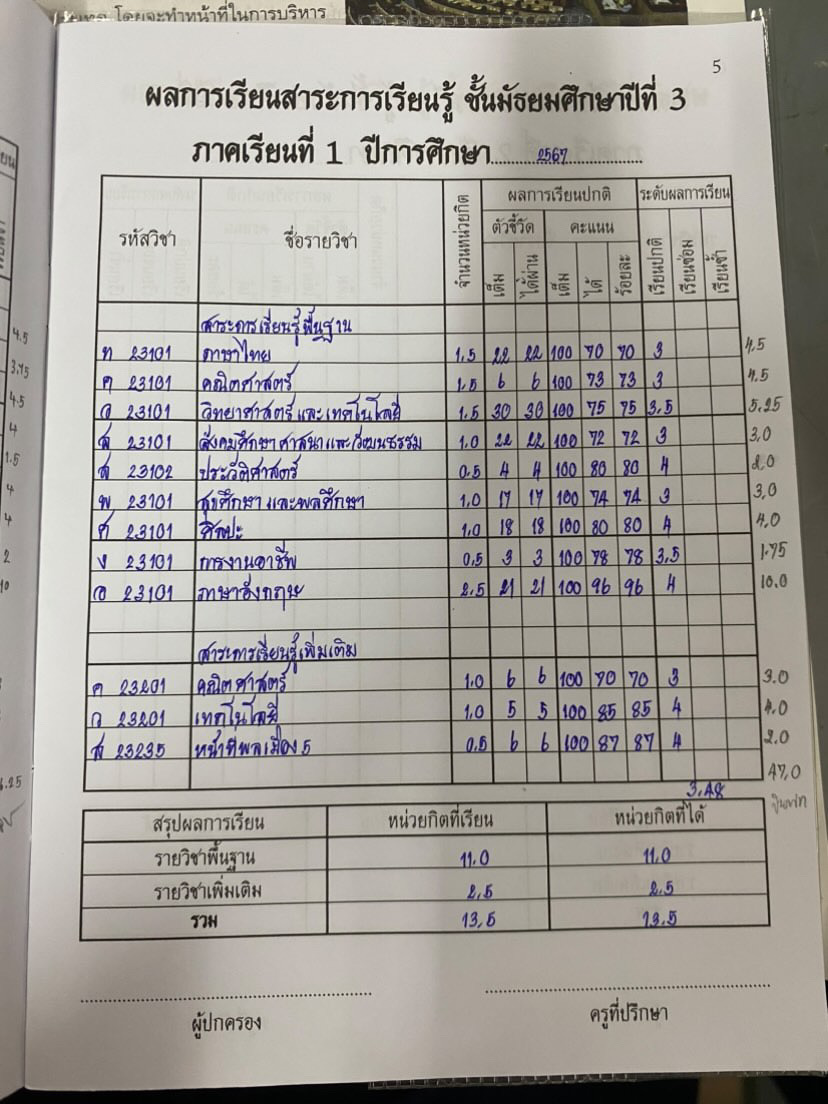 โดยจะทำหน้าที่ในการบริหาร
5
ผลการเรียนสาระการเรียนรู้ ชั้นมัธยมศึกษาปีที่ 3
ภาคเรียนที่ 1 ปีการศึกษา 2567
รหัสวิชา ชื่อรายวิชา จำนวนหน่วยกิต ผลการเรียนปกติ ระดับผลการเรียน
ตัวชี้วัด คะแนน
เต็ม ได้ผ่าน เต็ม ได้ ร้อยละ เรียนปกติ เรียนซ่อม เรียนซ้ำ
สาระการเรียนรู้พื้นฐาน
ท 23101 ภาษาไทย 1.5 22 22 100 70 70 3 4.5
ค 23101 คณิตศาสตร์ 1.5 6 6 100 73 73 3 4.5
ว 23101 วิทยาศาสตร์และเทคโนโลยี 1.5 30 30 100 75 75 3.5 5.25
ส 23101 สังคมศึกษา ศาสนา และวัฒนธรรม 1.0 22 22 100 72 72 3 3.0
ส 23102 ประวัติศาสตร์ 0.5 4 4 100 80 80 4 2.0
พ 23101 สุขศึกษา และพลศึกษา 1.0 17 17 100 74 74 3 3.0
ศ 23101 ศิลปะ 1.0 18 18 100 80 80 4 4.0
ง 23101 การงานอาชีพ 0.5 3 3 100 78 78 3.5 1.75
อ 23101 ภาษาอังกฤษ 2.5 21 21 100 96 96 4 10.0
สาระการเรียนรู้เพิ่มเติม
ค 23201 คณิตศาสตร์ 1.0 6 6 100 70 70 3 3.0
ว 23201 เทคโนโลยี 1.0 5 5 100 85 85 4 4.0
ส 23235 หน้าที่พลเมือง 5 0.5 6 6 100 87 87 4 2.0
47.0
3.48
สรุปผลการเรียน หน่วยกิตที่เรียน หน่วยกิตที่ได้
รายวิชาพื้นฐาน 11.0 11.0
รายวิชาเพิ่มเติม 2.5 2.5
รวม 13.5 13.5
ผู้ปกครอง ครูที่ปรึกษา